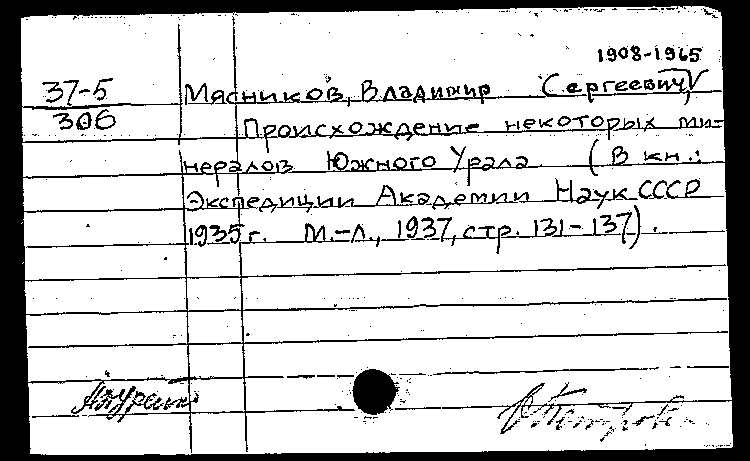 1908-1965
37-5 Мясников, Владимир Сергеевич
306 Происхождение некоторых ми-
нералов Южного Урала (В кн.:
Экспедиции Академии Наук СССР
1935 г. М.-Л., 1937, стр. 131-137).